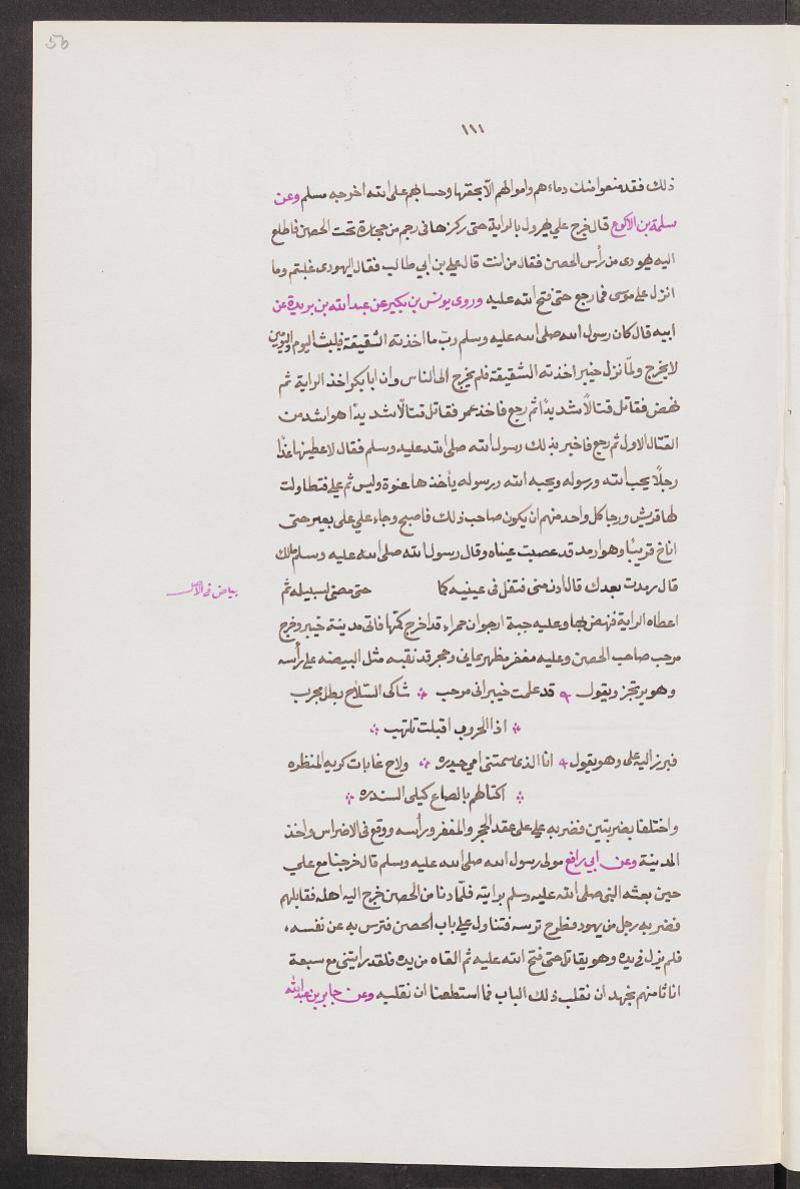 56
١١١
ذلك فقد منعوا منك دماءهم واموالهم الا بحقها وحسابهم على الله اخرجه مسلم وعن
سلمة بن الاكوع قال خرج علي يهرول بالراية حتى ركزها فى رجم من حجارة تحت الحصن فاطلع
اليه يهودى من رأس الحصن فقال من انت قال علي بن ابي طالب فقال اليهودى غلبتم وما
انزل على موسى فما رجع حتى فتح الله عليه وروى يونس بن بكير عن عبد الله بن بريدة عن
ابيه قال كان رسول الله صلى الله عليه وسلم ربّ ما اخذته الشقيقة فيلبث اليوم واليومين
لا يخرج ولمّا نزل خيبر اخذته الشقيقة فلم يخرج الى الناس وان ابا بكر اخذ الراية ثم
نهض فقاتل قتالًا شديدًا ثم رجع فاخذ عمر فقاتل قتالًا شديدًا هو اشد من
القتال الاول ثم رجع فاخبر بذلك رسول الله صلى الله عليه وسلم فقال لاعطينها غدًا
رجلًا يحب الله ورسوله ويحبه الله ورسوله يأخذها عنوة وليس ثم علي فتطاولت
لها قريش ورجا كل واحد منهم ان يكون صاحب ذلك فاصبح وجاء علي على بعير حتى
اناخ قريبًا وهو ارمد قد عصبت عيناه وقال رسول الله صلى الله عليه وسلم مالك
قال رمدت بعدك قال ادن منى فتفل فى عينيه كما حتى مضى لسبيله ثم
بياض فى الاصل
اعطاه الراية فنهض بها وعليه جبة ارجوان حمراء قد اخرج كمّها فاتى مدينة خيبر وخرج
مرحب صاحب الحصن وعليه مغفر مظهر يمانى وحجر قد نقبه مثل البيضه على رأسه
وهو يرتجز ويقول قد علمت خيبر انى مرحب شاكى السّلاح بطل مجرب
اذا الحروب اقبلت تلتهب
فبرز اليه على وهو يقول انا الذى سمتنى امي حيدره ولاح غابات كريه المنظره
اكتالهم بالصاع كيلى السندره
واختلفا بضربتين فضربه علي على عقد الحجر والمغفر ورأسه ووقع فى الاضراس واخذ
المدينة وعن ابي رافع مولى رسول الله صلى الله عليه وسلم قال خرجنا مع علي
حين بعثه النبى صلى الله عليه وسلم برايته فلمّا دنا من الحصن خرج اليه اهله فقابلهم
فضربه رجل من يهود فطرح ترسه فتناول علي باب الحصن فترس به عن نفسه،
فلم يزل فى يده وهو يقاتل حتى فتح الله عليه ثم القاه من يده فلقد رايتنى مع سبعة
انا ثامنهم نجهد ان نقلب ذلك الباب فما استطعنا ان نقلبه وعن جابر بن عبد الله